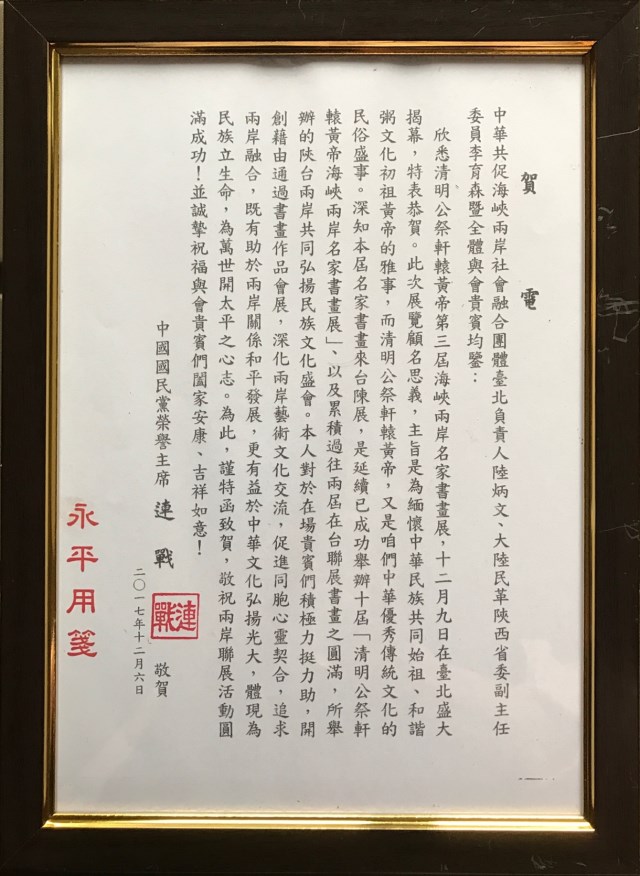 賀電
中華共促海峽兩岸社會融合團體臺北負責人陸炳文、大陸民革陝西省委副主任
委員李育森暨全體與會貴賓均鑒：
欣悉清明公祭軒轅黃帝第三屆海峽兩岸名家書畫展，十二月九日在臺北盛大
揭幕，特表恭賀。此次展覽顧名思義，主旨是為緬懷中華民族共同始祖、和諧
粥文化初祖黃帝的雅事，而清明公祭軒轅黃帝，又是咱們中華優秀傳統文化的
民俗盛事。深知本屆名家書畫來台陳展，是延續已成功舉辦十屆「清明公祭軒
轅黃帝海峽兩岸名家書畫展」、以及累積過往兩屆在台聯展書畫之圓滿，所舉
辦的陝台兩岸共同弘揚民族文化盛會。本人對於在場貴賓們積極力挺力助，開
創藉由通過書畫作品會展，深化兩岸藝術文化交流，促進同胞心靈契合，追求
兩岸融合，既有助於兩岸關係和平發展，更有益於中華文化弘揚光大，體現為
民族立生命，為萬世開太平之心志。為此，謹特函致賀，敬祝兩岸聯展活動圓
滿成功！並誠摯祝福與會貴賓們闔家安康、吉祥如意！
中國國民黨榮譽主席 連戰 敬賀
連戰
二〇一七年十二月六日
永平用箋